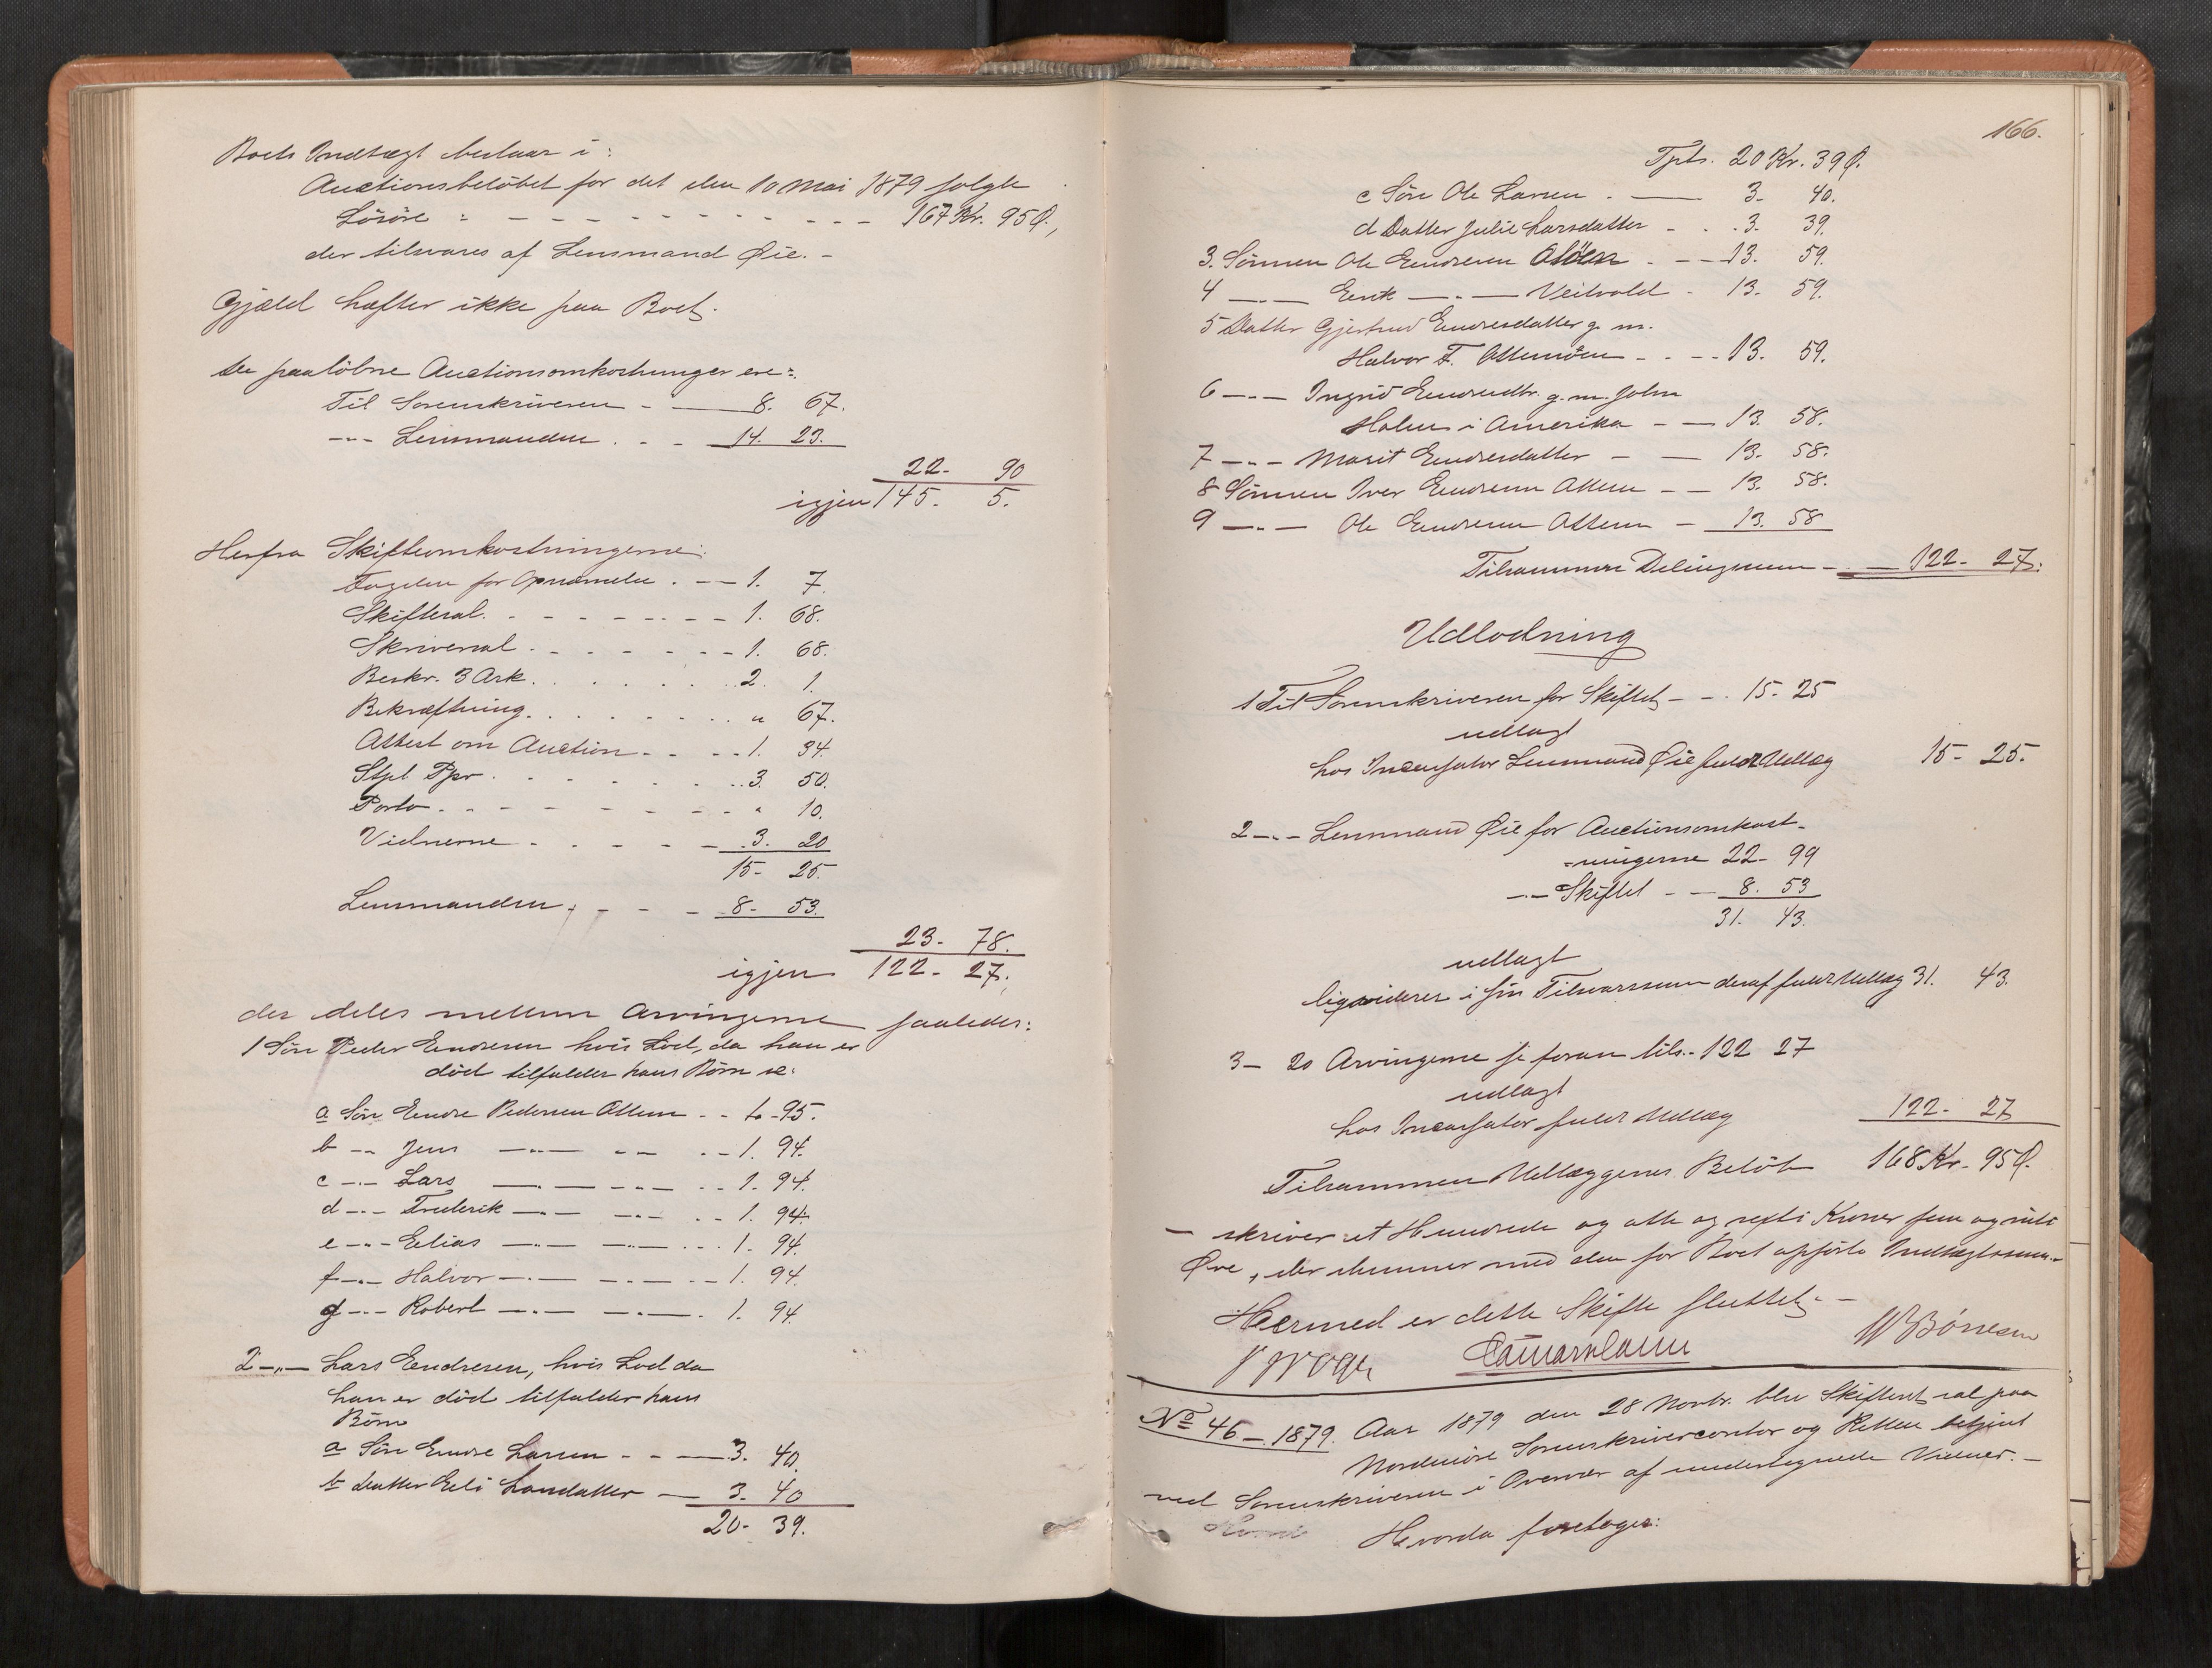 Boets Indtægt bestaar i:
Auctionsbeløbet for det den 10 Mai 1879 solgte
Løsøre : - - - - - - - - - - 167 Kr. 95 Ø.,
der tilsvares af Lensmand Øie. -
Gjæld hæfter ikke paa Boet.
De paaløbne Auctionsomkostninger ere:
Til Sorenskriveren - — 8. 67.
-„- Lensmanden . - - 14. 23.
22- 90
igjen 145. 5.
Herfra Skifteomkostningerne:
Fogden for Opnævnelse . - — 1. 7.
Skiftesal. - - - - - - - 1. 68.
Skriversal - - - - - - - 1. 68.
Beskr. 3 Ark. . . . . . . 2. 1.
Bekræftning. . . . . . . . „ 67.
Attest om Auction - - - - 1. 34.
Stpl Ppr . . . . . . . . 3. 50.
Porto - - - - - - - - „ 10.
Vidnerne - - - - - 3. 20
15- 25.
Lensmanden, - - - - 8- 53.
23- 78.
igjen 122- 27.
der deles mellem Arvingerne saaledes:
1 Søn Peder Endresen hvis Lod, da han er
død tilfalder hans Børn se:
a Søn Endre Pedersen Ottem - - 1-95.
b -„- Jens —„— -„- . - 1. 94.
c -„- Lars —„— -„- - - 1. 94.
d -„- Frederik —„— -„- - - 1. 94.
e -„- Elias —„— -„- . . . 1. 94.
f -„- Halvor —„— -„- - - 1. 94.
g -„- Robert —„— -„-. 1. 94.
2 -„- Lars Endresen, hvis Lod da
han er død tilfalder hans
Børn
a Søn Endre Larsen - - — 3. 40.
b Datter Eli Larsdatter — 3. 40
20- 39.
166.
Tpts. 20 Kr. 39 Ø.
c Søn Ole Larsen . — 3. 40.
d Datter Julie Larsdatter - . . 3. 39.
3. Sønnen Ole Endresen - — 13. 59.
4 —„— Erik —„— Veitvold - 13. 59.
5 Datter Gjertrud Endresdatter g. m.
Halvor F. Ottemöien - - - - 13. 59.
6 —„— Ingrid Endresdtr. g. m. John
Holen i Amerika - — 13. 58.
7 —„— Marit Endresdatter - — 13. 58.
8 Sønnen Iver Endresen Ottem - — 13. 58.
9 —„— Ole Endresen Ottem — 13. 58
Tilsammen Delingssum - — 122- 27.
Udlodning
1 Til Sorenskriveren for Skiftet - - . 15- 25
udlagt
hos Incassator Lensmand Øie fuldt Udlæg 15- 25.
2 -„- Lensmand Øie for Auctionsomkost-
-ningerne 22- 99
-„- Skiftet - — 8. 53
31. 43.
udlagt
liqviderer i sin Tilsvarssum deraf fuldt Udlæg 31. 43.
3 - 20 Arvingerne se foran tils.- 122 27
udlagt
hos Incassator fuldt Udlæg 122- 27
Tilsammen Udlæggenes Beløb 168 Kr. 95 Ø.
— skriver et Hundrede og otte og sexti Kroner fem og niti
Øre, der stemmer med den for Boet opførte Indtægtssum.-
Hermed er dette Skifte sluttet. —
No 46 - 1879. Aar 1879 den 28 Novbr. blev Skifteret sat paa
Nordmöre Sorenskrivercontor og Retten betjent
ved Sorenskriveren i Overvær af undertegnede Vidner. -
Hvorda foretoges: